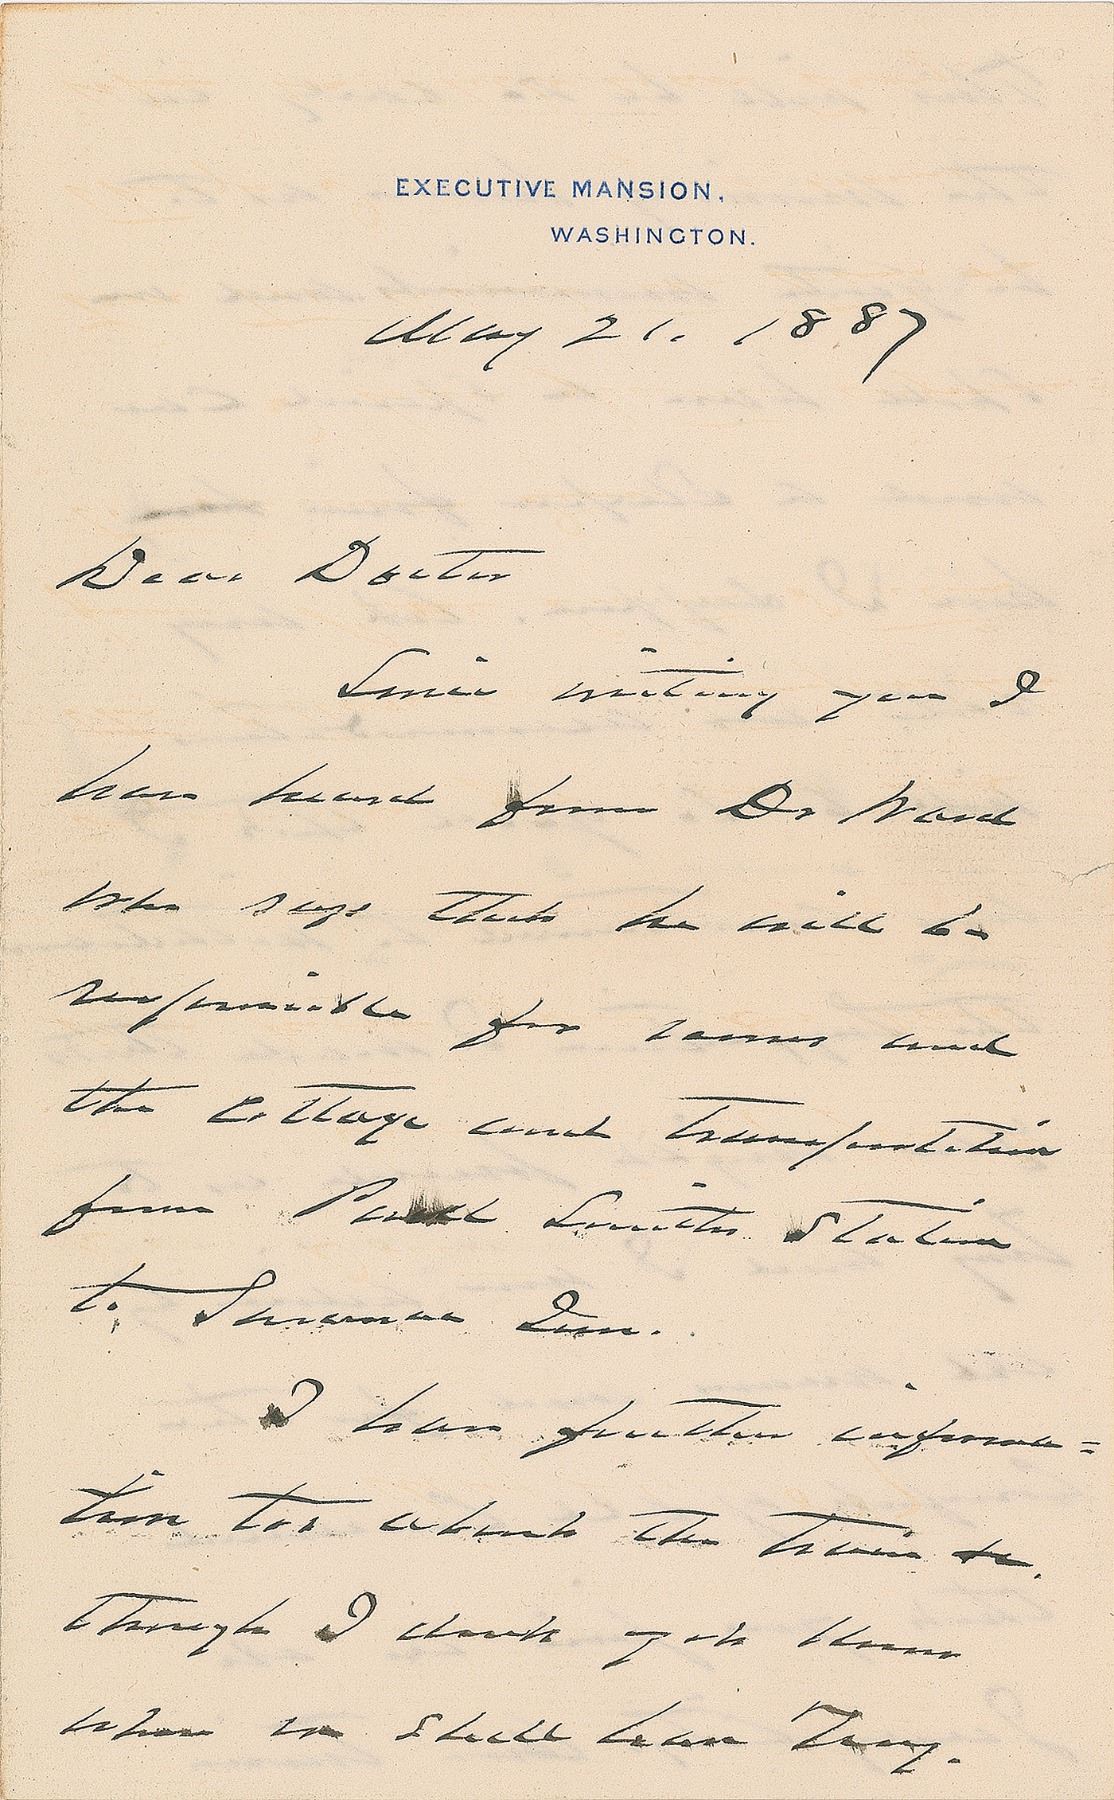 EXECUTIVE MANSION,
WASHINGTON.
May 21. 1887
Dear Doctor
Since writing you I
have heard from Dr Ward
who says that he will be
responsible for rooms and
the cottage and transportation
from Paul Smiths Station
to Saranac Inn.
I have further informa=
tion too about the train &c.
though I don't yet know
when we shall leave Troy.